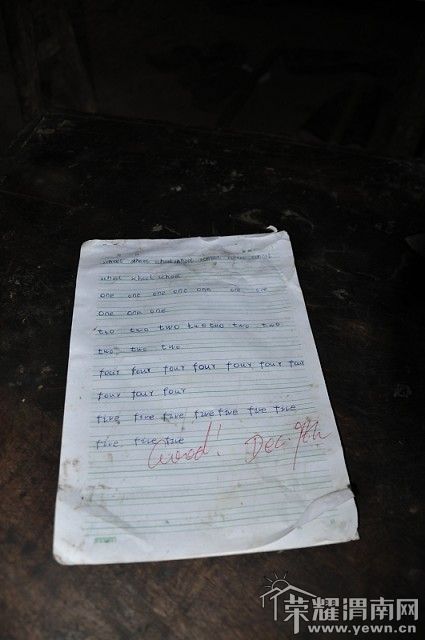 school school school school school school school
school school school
one one one one one one one
one one one
two two two two two two two
two two two
four four four four four four four
four four four
five five five five five five five
five five five
Good! Dec. 9th
荣耀渭南网
www.yewn.cn